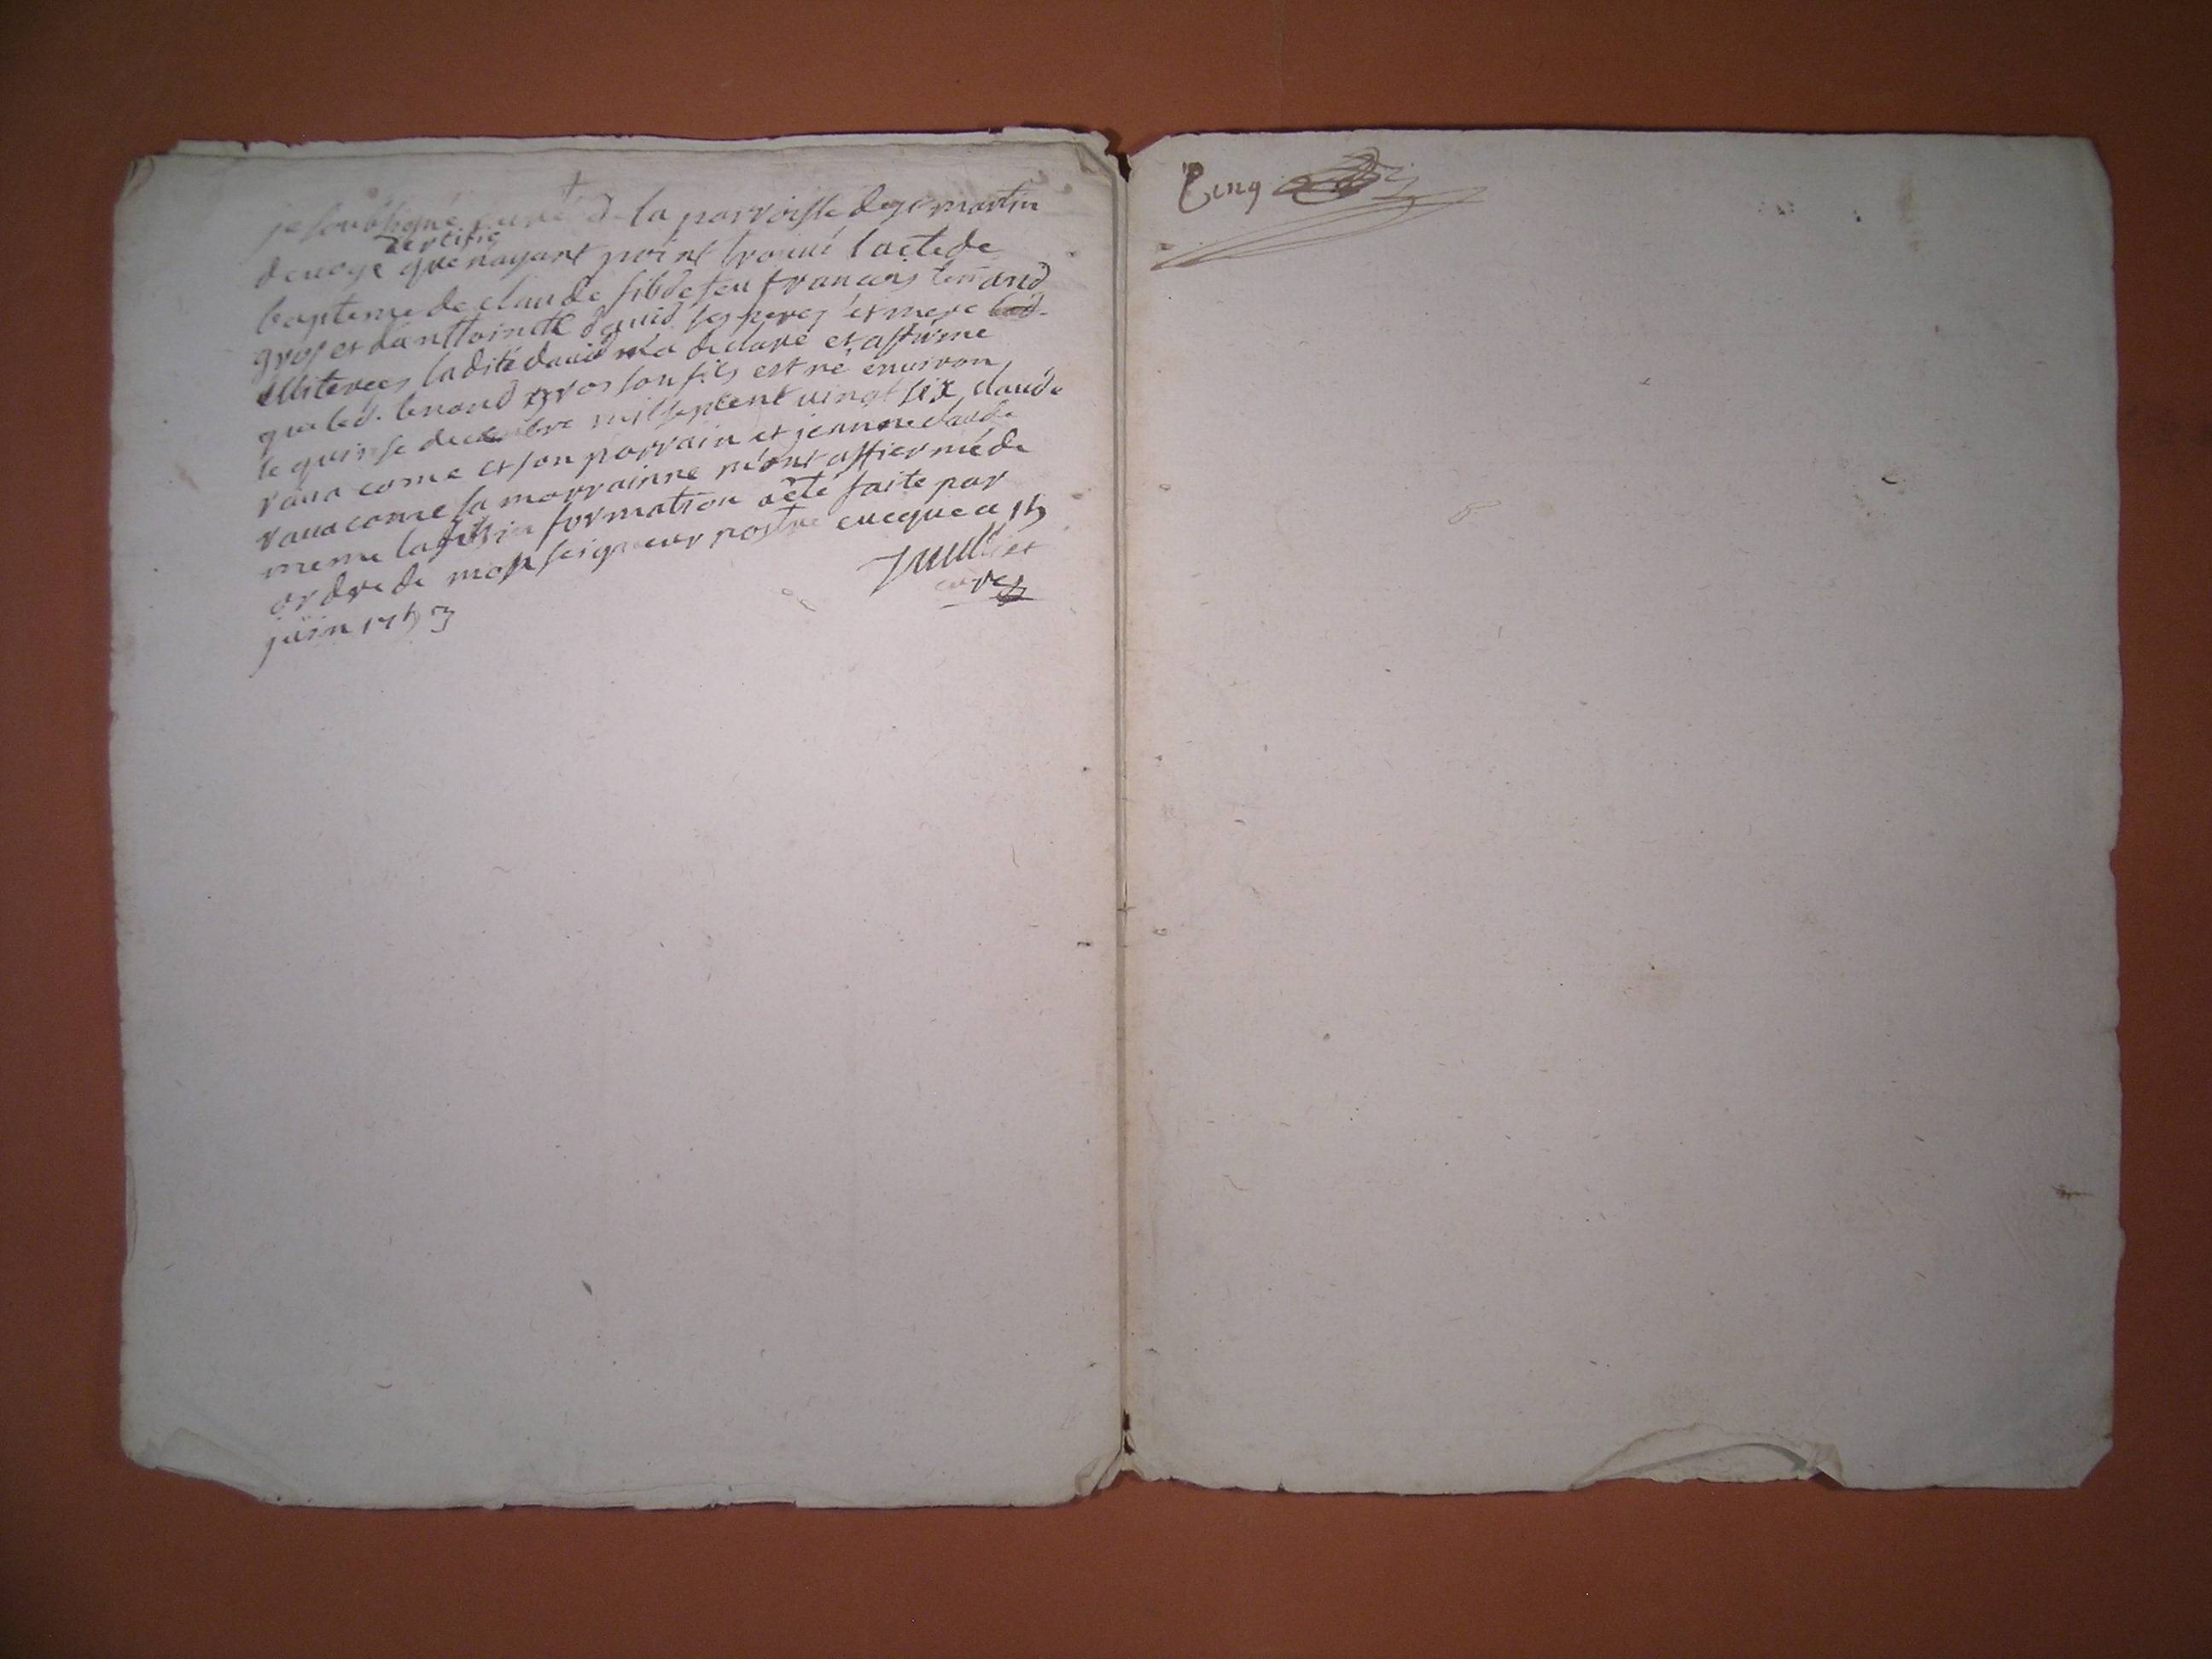 je soubsigné curé de la parroisse de st martin
certifie
que nayant point trouvé lacte de
bapteme de claude fils de feu francois benand
gros et danttoinette david ses peres et mere
illiterees ladite david ma declaré et affirmé
que led. benand gros son fils est né environ
le quinse decembre mil sept cent vingt six claude
ravacome et son parrain et jeanne claude
ravacome sa marrainne mont affiermé de
meme la information a été faite par
ordre de monseigneur nostre eveque ce
juin
curé
Cinq